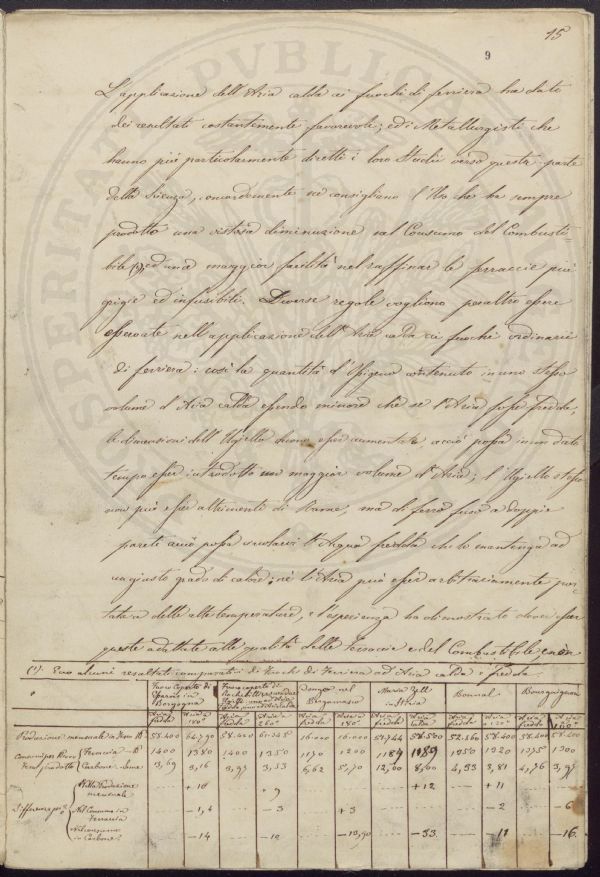 15
9
L'applicazione dell'Aria calda ai fuochi di ferriera ha dato
dei resultati costantemente favorevoli; ed i Metallurgisti che
hanno più particolarmente diretti i loro Studii verso questa parte
della Scienza, concordemente ne consigliano l'Uso che ha sempre
prodotto una vistosa diminuzione nel Consumo del Combusti-
bile (1), ed una maggior facilità nel raffinar le ferraccie più
grigie ed infusibili. Diverse regole vogliono peraltro essere
osservate nell'applicazione dell'Aria calda ai fuochi ordinarii
di ferriera: così la quantità d'Ossigeno contenuto in uno stesso
volume d'Aria calda essendo minore che se l'Aria fosse fredda,
le dimensioni dell'Ugello devono esser aumentate acciò possa in un dato
tempo esser introdotto un maggior volume d'Aria; l'Ugello stesso
non può esser altrimenti di Rame, ma di ferro fuso a doppie
parete acciò possa scolarci l'Acqua fredda che lo mantenga ad
un giusto grado di calore; nè l'Aria può esser arbitrariamente por-
tata a delle alte temperature, e l'esperienza ha dimostrato dover esser
queste adattate alle qualità delle ferraccie e del Combustibile, ed in
(1) Ecco alcuni resultati comparativi di Fuochi di Ferriera ad Aria calda e fredda.
Fuoco Coperto di
Borgogna
Fuoco coperto di
nel
Bergamasco
in Istria
Bonnal
Bourguignon
Aria fredda Aria a 180° Aria fredda Aria a 260° Aria fredda Aria a 180° Aria fredda Aria a Aria fredda Aria a Aria fredda Aria a
Produzione mensuale in Ferro 58.400 64.790 58.400 16.000 16.000 58.400 58.400
Ferraccia 1400 1380 1400 1350 1170 1200 1189 1189 1350 1320 1375 1300
Carbone 3,69 3,16 3,97 3,53 6,62 5,70 12,00 8,00 4,33 3,81 4,76 3,97
Differenze p%
Nella Produzione mensuale + 10 + 9 + 12 + 11
Nel Consumo in Ferraccia - 1,4 - 3 + 3 - 2 - 6
Nel consumo in Carbone - 14 - 10 - 13,90 - 33 - 11 - 16